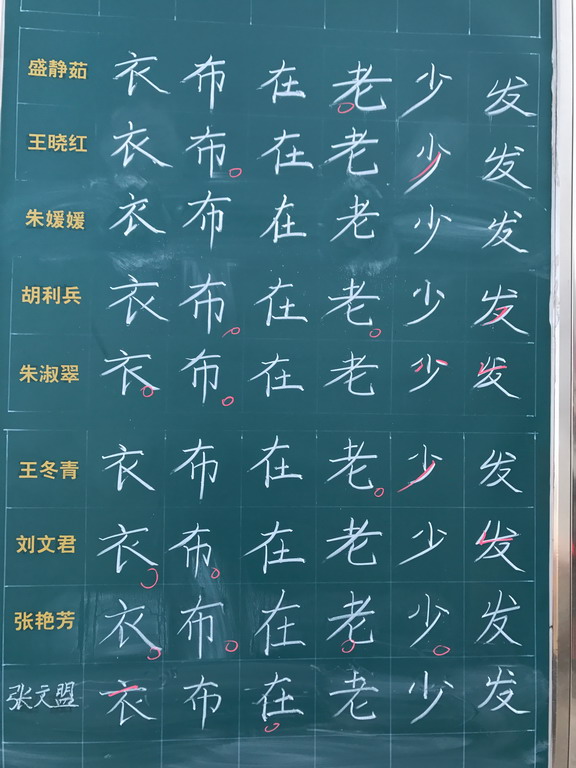 盛静茹 衣 布 在 老 少 发
王晓红 衣 布 在 老 少 发
朱媛媛 衣 布 在 老 少 发
胡利兵 衣 布 在 老 少 发
朱淑翠 衣 布 在 老 少 发
王冬青 衣 布 在 老 少 发
刘文君 衣 布 在 老 少 发
张艳芳 衣 布 在 老 少 发
张文盟 衣 布 在 老 少 发